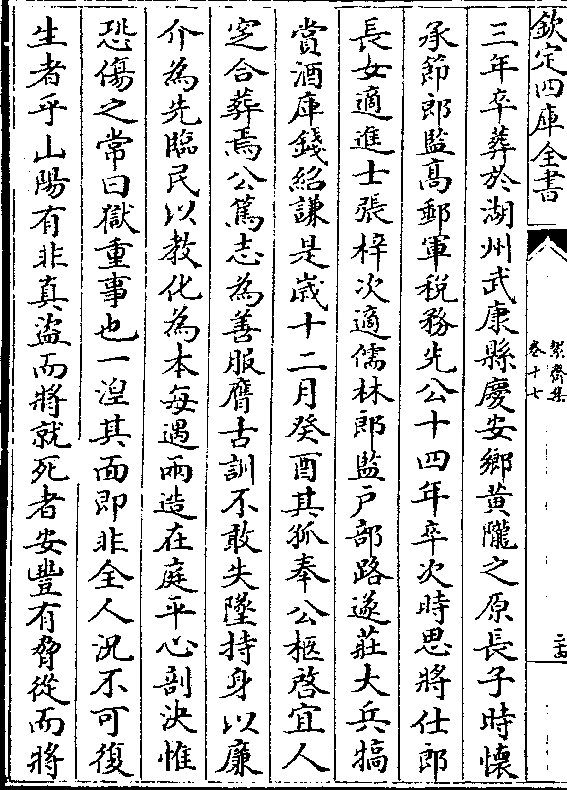 欽定四庫全書
絜齋集
卷十七
二十五
三年卒葬於湖州武康縣慶安鄉黄隴之原長子時懷
承節郎監髙郵軍税務先公十四年卒次時思將仕郎
長女適進士張梓次適儒林郎監户部路遂莊大兵犒
賞酒庫錢紹謙是嵗十二月癸酉其孤奉公柩啓宜人
窆合葬焉公篤志為善服膺古訓不敢失墜持身以廉
介為先臨民以教化為本每遇兩造在庭平心剖決惟
恐傷之常曰獄重事也一湼其面即非全人况不可復
生者乎山陽有非真盜而將就死者安豐有脅從而將